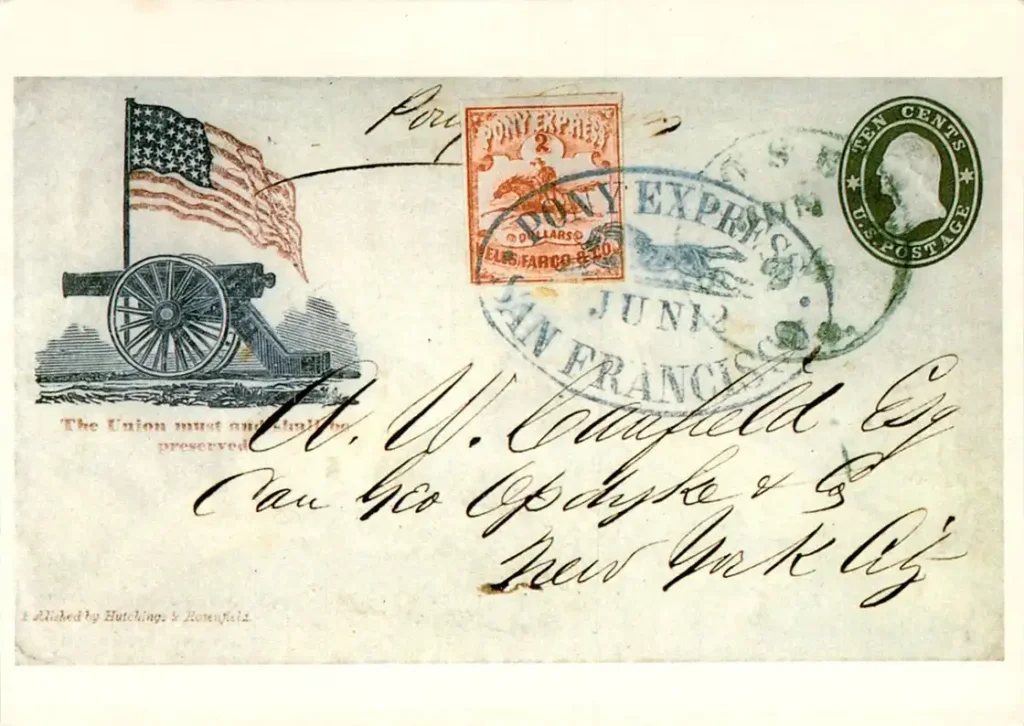 Pony
PONY EXPRESS
2
DOLLARS
WELLS FARGO & CO.
PONY EXPRESS
JUN 12
SAN FRANCISCO
TEN CENTS
U.S. POSTAGE
The Union must and shall be
preserved
W. Canfield Esq
Geo Opdyke & Co
New York City
Published by Hutchings & Rosenfield.